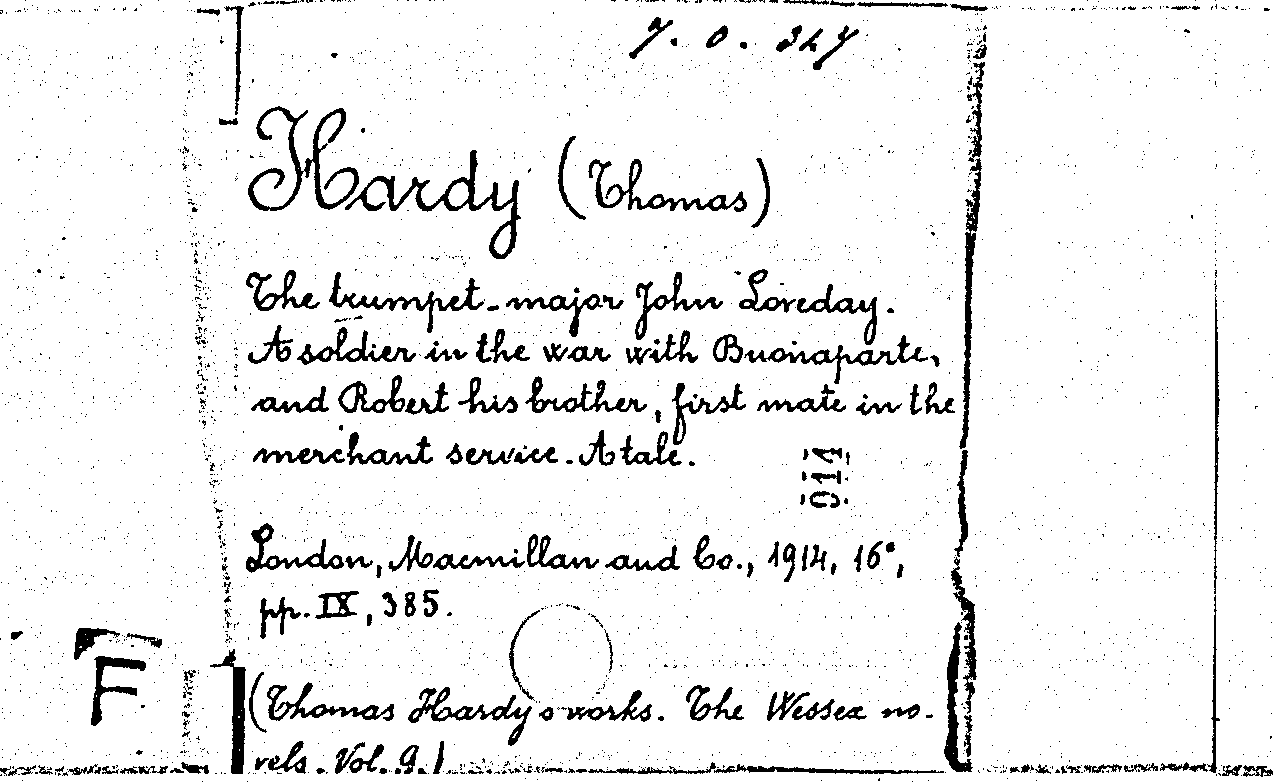 7. 0. 327
Hardy (Thomas)
The trumpet-major John Loveday.
A soldier in the war with Buonaparte,
and Robert his brother, first mate in the
merchant service. A tale.
914
London, Macmillan and Co., 1914, 16°,
pp. IX, 385.
F
(Thomas Hardy's works. The Wessex no-
vels. Vol. 9.)